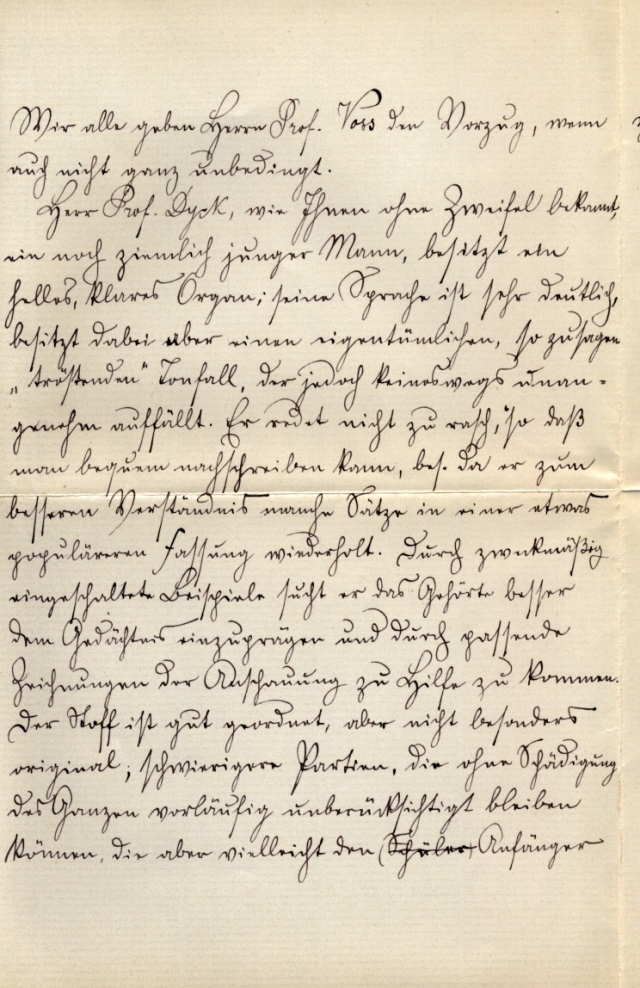 Wir alle geben Herrn Prof. Voss den Vorzug, wenn
auch nicht ganz unbedingt.
Herr Prof. Dyck, wie Ihnen ohne Zweifel bekannt,
ein noch ziemlich junger Mann, besitzt ein
helles, klares Organ; seine Sprache ist sehr deutlich,
besitzt dabei aber einen eigentümlichen, so zu sagen
„tröstenden“ Tonfall, der jedoch keineswegs unan=
genehm auffällt. Er redet nicht zu rasch, so daß
man bequem nachschreiben kann, bes. da er zum
besseren Verständnis manche Sätze in einer etwas
populäreren Fassung wiederholt. Durch zweckmäßig
eingeschaltete Beispiele sucht er das Gehörte besser
dem Gedächtnis einzuprägen und durch passende
Zeichnungen der Anschauung zu Hilfe zu kommen.
Der Stoff ist gut geordnet, aber nicht besonders
original; schwierigere Partien, die ohne Schädigung
des Ganzen vorläufig unberücksichtigt bleiben
können, die aber vielleicht den (Schüler) Anfänger